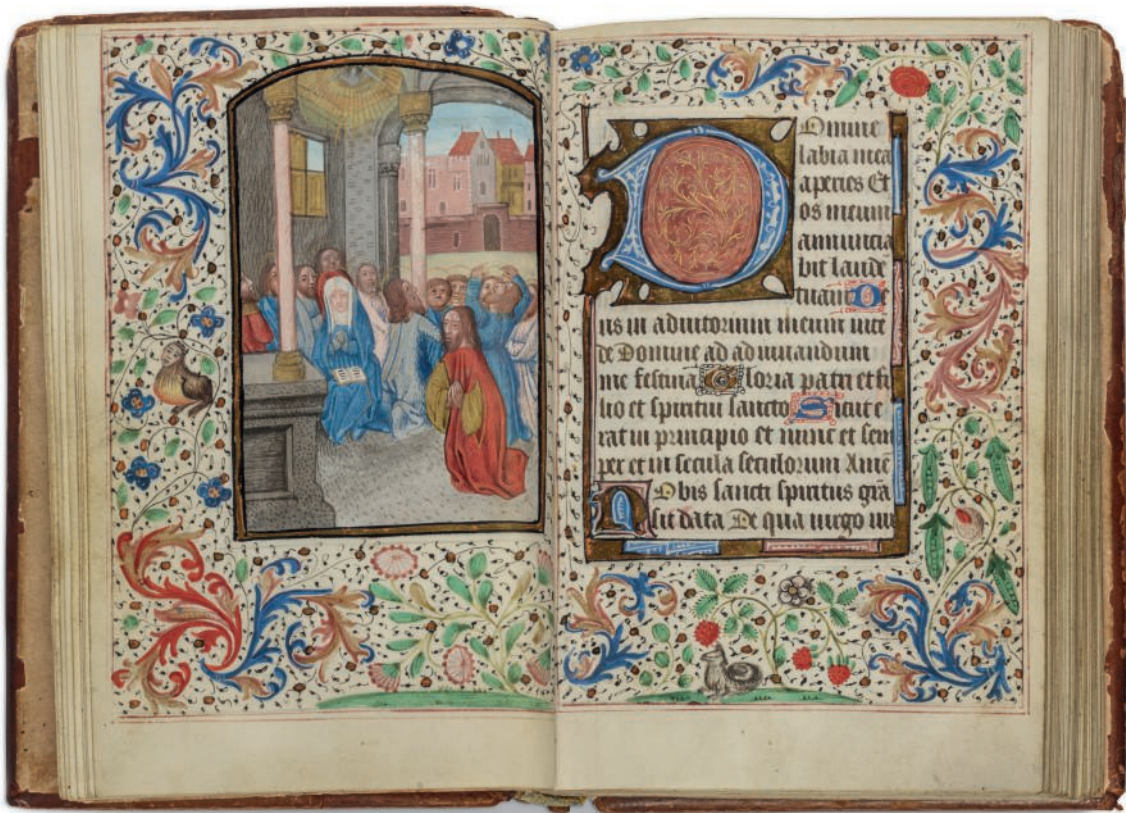 Domine
labia mea
aperies Et
os meum
annuncia
bit laude
tuam De
us in adiutorium meum inte
de Domine ad adiuuandum
me festina Gloria patri et fi
lio et spiritui sancto Sicut e
rat in principio et nunc et sem
per et in secula seculorum Ame
Nobis sancti spiritus gra
sit data De qua uirgo